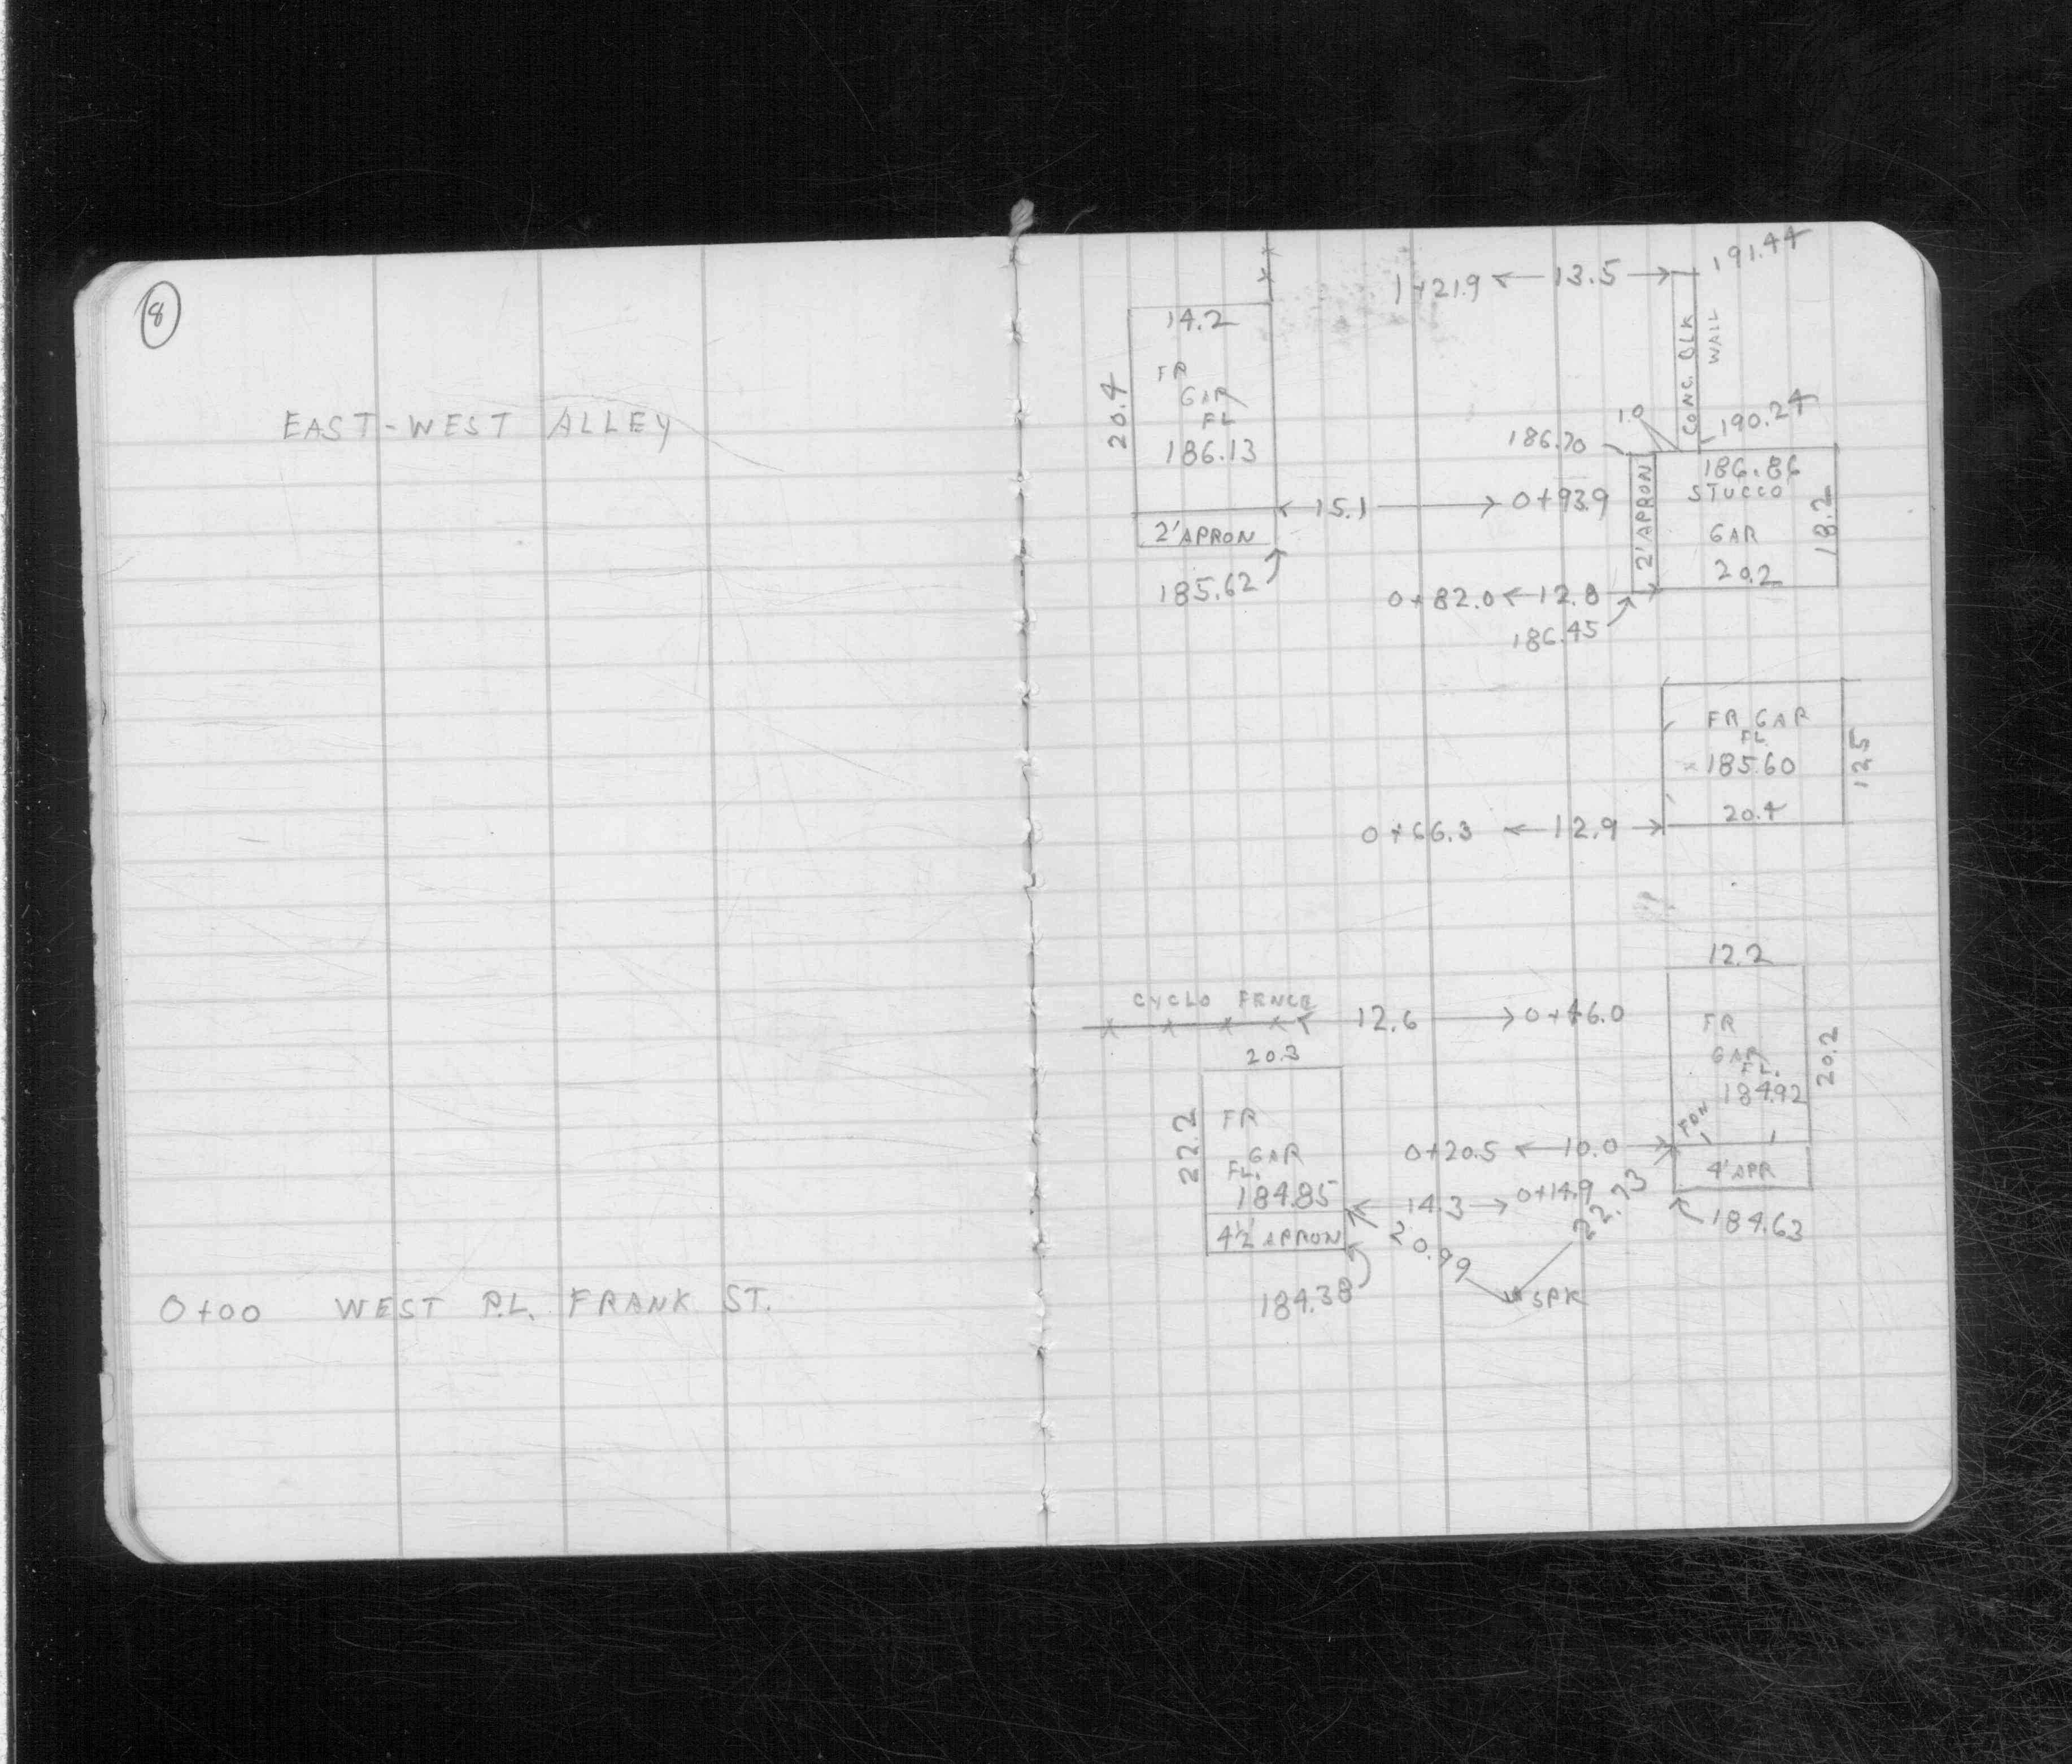 8
EAST-WEST ALLEY
0+00 WEST P.L. FRANK ST.
1+21.9 13.5 191.44
14.2
CONC. BLK
WALL
20.4
FR
GAR
FL
186.13
1.0
190.24
186.70
186.86
STUCCO
GAR
20.2
18.2
2' APRON
15.1 0+93.9
2' APRON
185.62
0+82.0 12.8
186.45
FR GAR
FL
185.60
20.4
12.5
0+66.3 12.9
12.2
CYCLO FENCE
12.6 0+46.0
20.3
FR
GAR
FL.
184.92
20.2
FDN
22.2
FR
GAR
FL.
184.85
0+20.5 10.0
4' APR
14.3 0+14.9
22.23
184.63
4½' APRON
20.99
184.38
SPK